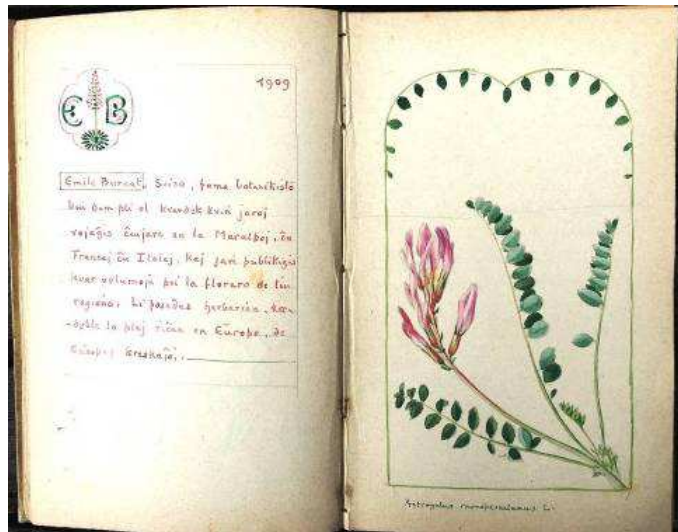 E B
1909
Emile Burnat, Sviso, fama botanikisto
kiu dum pli ol kvardek kvin jaroj
vojaĝis ĉiujare en la Maralpoj, ĉu
Francaj ĉu Italaj, kaj jam publikigis
kvar volumojn pri la floraro de tiu
regiono. Li posedas herbarion,
-deble la plej riĉan en Eŭropo, je
Eŭropaj kreskaĵoj.
Astragalus monspessulanus L.